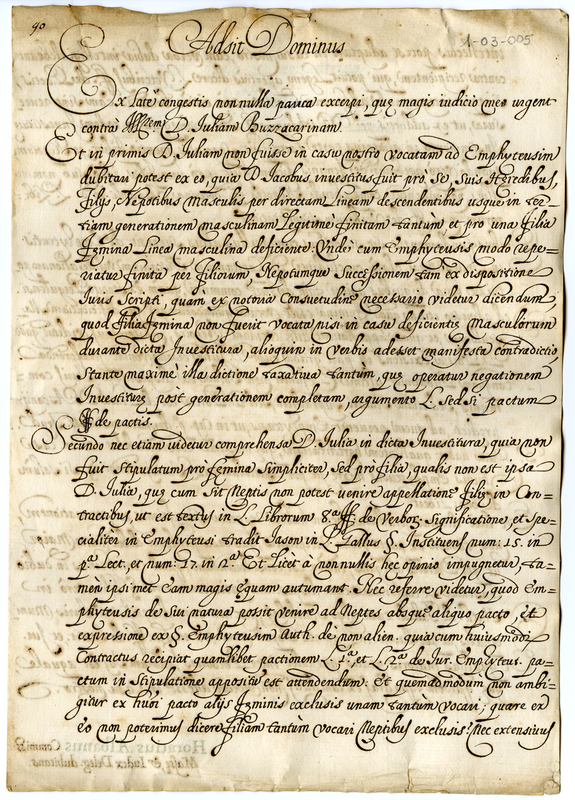 90
1-03-005
Adsit Dominus
Ex late congestis non nulla pauca excerpi, quę magis iudicio meo urgent
contrà Illustrem D. Iuliam Buzzacarinam.
Et in primis D. Iuliam non fuisse in casu nostro vocatam ad Emphyteusim
dubitari potest ex eo, quià D. Iacobus investitus fuit prò Se, Suis Heredibus,
filijs, Nepotibus Masculis per directam Lineam descendentibus usque in ter=
tiam generationem masculinam Legitimè finitam tantùm, et pro una filia
Fęmina Linea masculina deficiente: Undè cum Emphyteusis modo repe=
riatur finita per filiorum, Nepotumque Successionem tàm ex dispositione
Iuris Scripti, quam ex notoria Consuetudine necessario videtur dicendum,
quod filia fęmina non fuerit vocata nisi in casu deficientię Masculorum
durante dicta Investitura, alioquin in verbis adesset manifesta contradictio
Stante maximè illa dictione taxativa tantum, quę operatur negationem
Investiturę post generationem completam, argumento L. sed si pactum
ff de pactis.
Secundo nec etiam videtur comprehensa D. Iulia in dicta Investitura, quia non
fuit stipulatum prò fęmina Simpliciter, Sed prò filia, qualis non est ipsa
D. Iulia, quę cum Sit Neptis non potest venire appellatione filię in Con=
tractibus, ut est textus in L. Librorum 8.ª ff de Verbor. Significatione, et Spe=
cialiter in Emphyteusi tradit Iason in L. Gallus §. Instituens num: 15. in
p.ª Lect. et num: 17. in 2.ª Et Licèt à non nullis hec opinio impugnetur, ta=
mèn ipsimet eam magis ęquam autumant. Nec referre videtur, quod Em=
phyteusis de Sui naturâ possit venire ad Neptes absque aliquo pacto, et
expressione ex §. Emphyteusim Auth. de non alien. quia cum huiusmodi
Contractus recipiat quamlibet pactionem L. p.ª et L. 2.ª de Iur. Emphyteut. pa=
ctum in Stipulatione appositum est attendendum: Et quemadmodum non ambi=
gitur ex hui pacto alijs fęminis exclusis unam tantùm vocari; quare ex
eo non poterimus dicere filiam tantùm vocari Neptibus exclusis? Nec extensivus